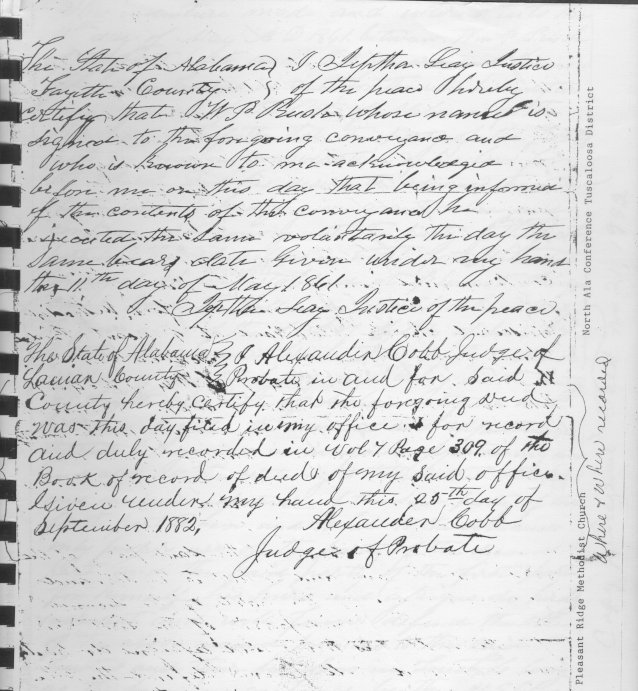 The State of Alabama } I Jeptha Seay Justice
Fayette County } of the peace hereby
certify that W P Rush whose name is
signed to the foregoing conveyance and
who is known to me acknowledged
before me on this day that being informed
of the contents of the conveyance he
executed the same voluntarily the day the
same bears date Given under my hand
the 11th day of May 1861
Jeptha Seay Justice of the peace
The State of Alabama } I Alexander Cobb Judge of
Lamar County } Probate in and for said
County hereby certify that the foregoing deed
was this day filed in my office for record
and duly recorded in Vol 7 Page 309 of the
Book of record of deeds of my said office.
Given under my hand this 25th day of
September 1882,
Alexander Cobb
Judge of Probate
Pleasant Ridge Methodist Church
North Ala Conference Tuscaloosa District
Where & Where recorded